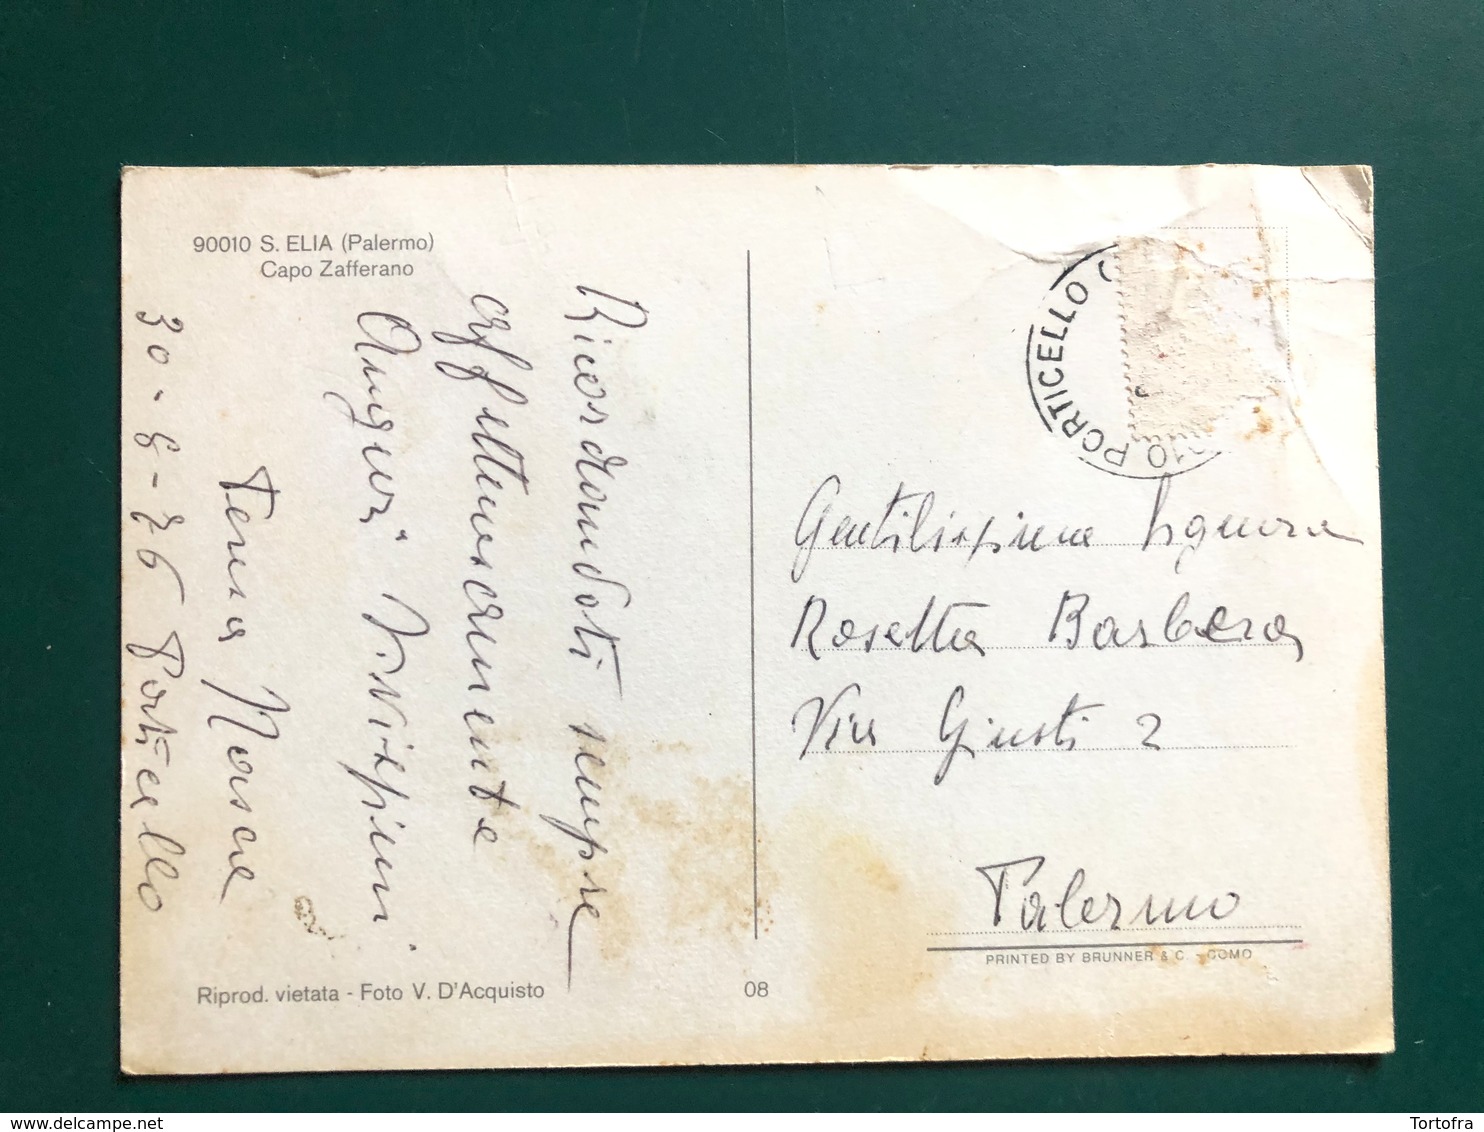 90010 S. ELIA (Palermo)
Capo Zafferano
Ricordandoti sempre
affettuosamente
Auguri Vivissimi
Nasca
30-8-76 Porticello
Riprod. vietata - Foto V. D'Acquisto
08
010 PORTICELLO
Gentilissima Signora
Rosetta Barbera
Via Giusti 2
Palermo
PRINTED BY BRUNNER & C. - COMO
Tortofra